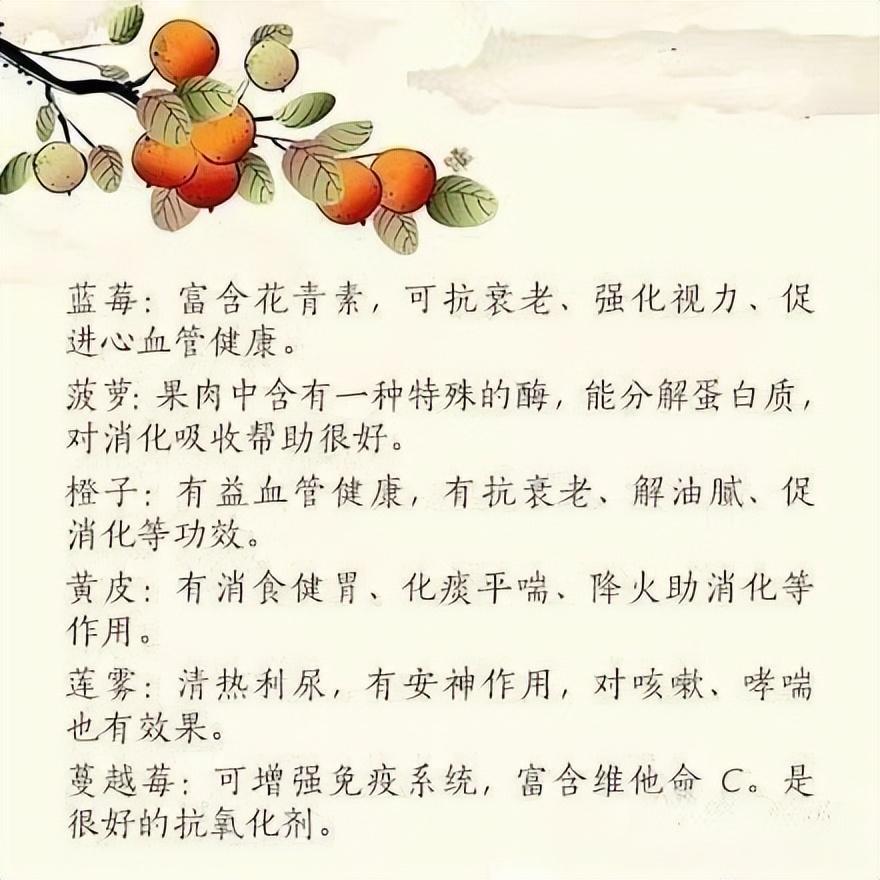 蓝莓：富含花青素，可抗衰老、强化视力、促
进心血管健康。
菠萝：果肉中含有一种特殊的酶，能分解蛋白质，
对消化吸收帮助很好。
橙子：有益血管健康，有抗衰老、解油腻、促
消化等功效。
黄皮：有消食健胃、化痰平喘、降火助消化等
作用。
莲雾：清热利尿，有安神作用，对咳嗽、哮喘
也有效果。
蔓越莓：可增强免疫系统，富含维他命 C。是
很好的抗氧化剂。